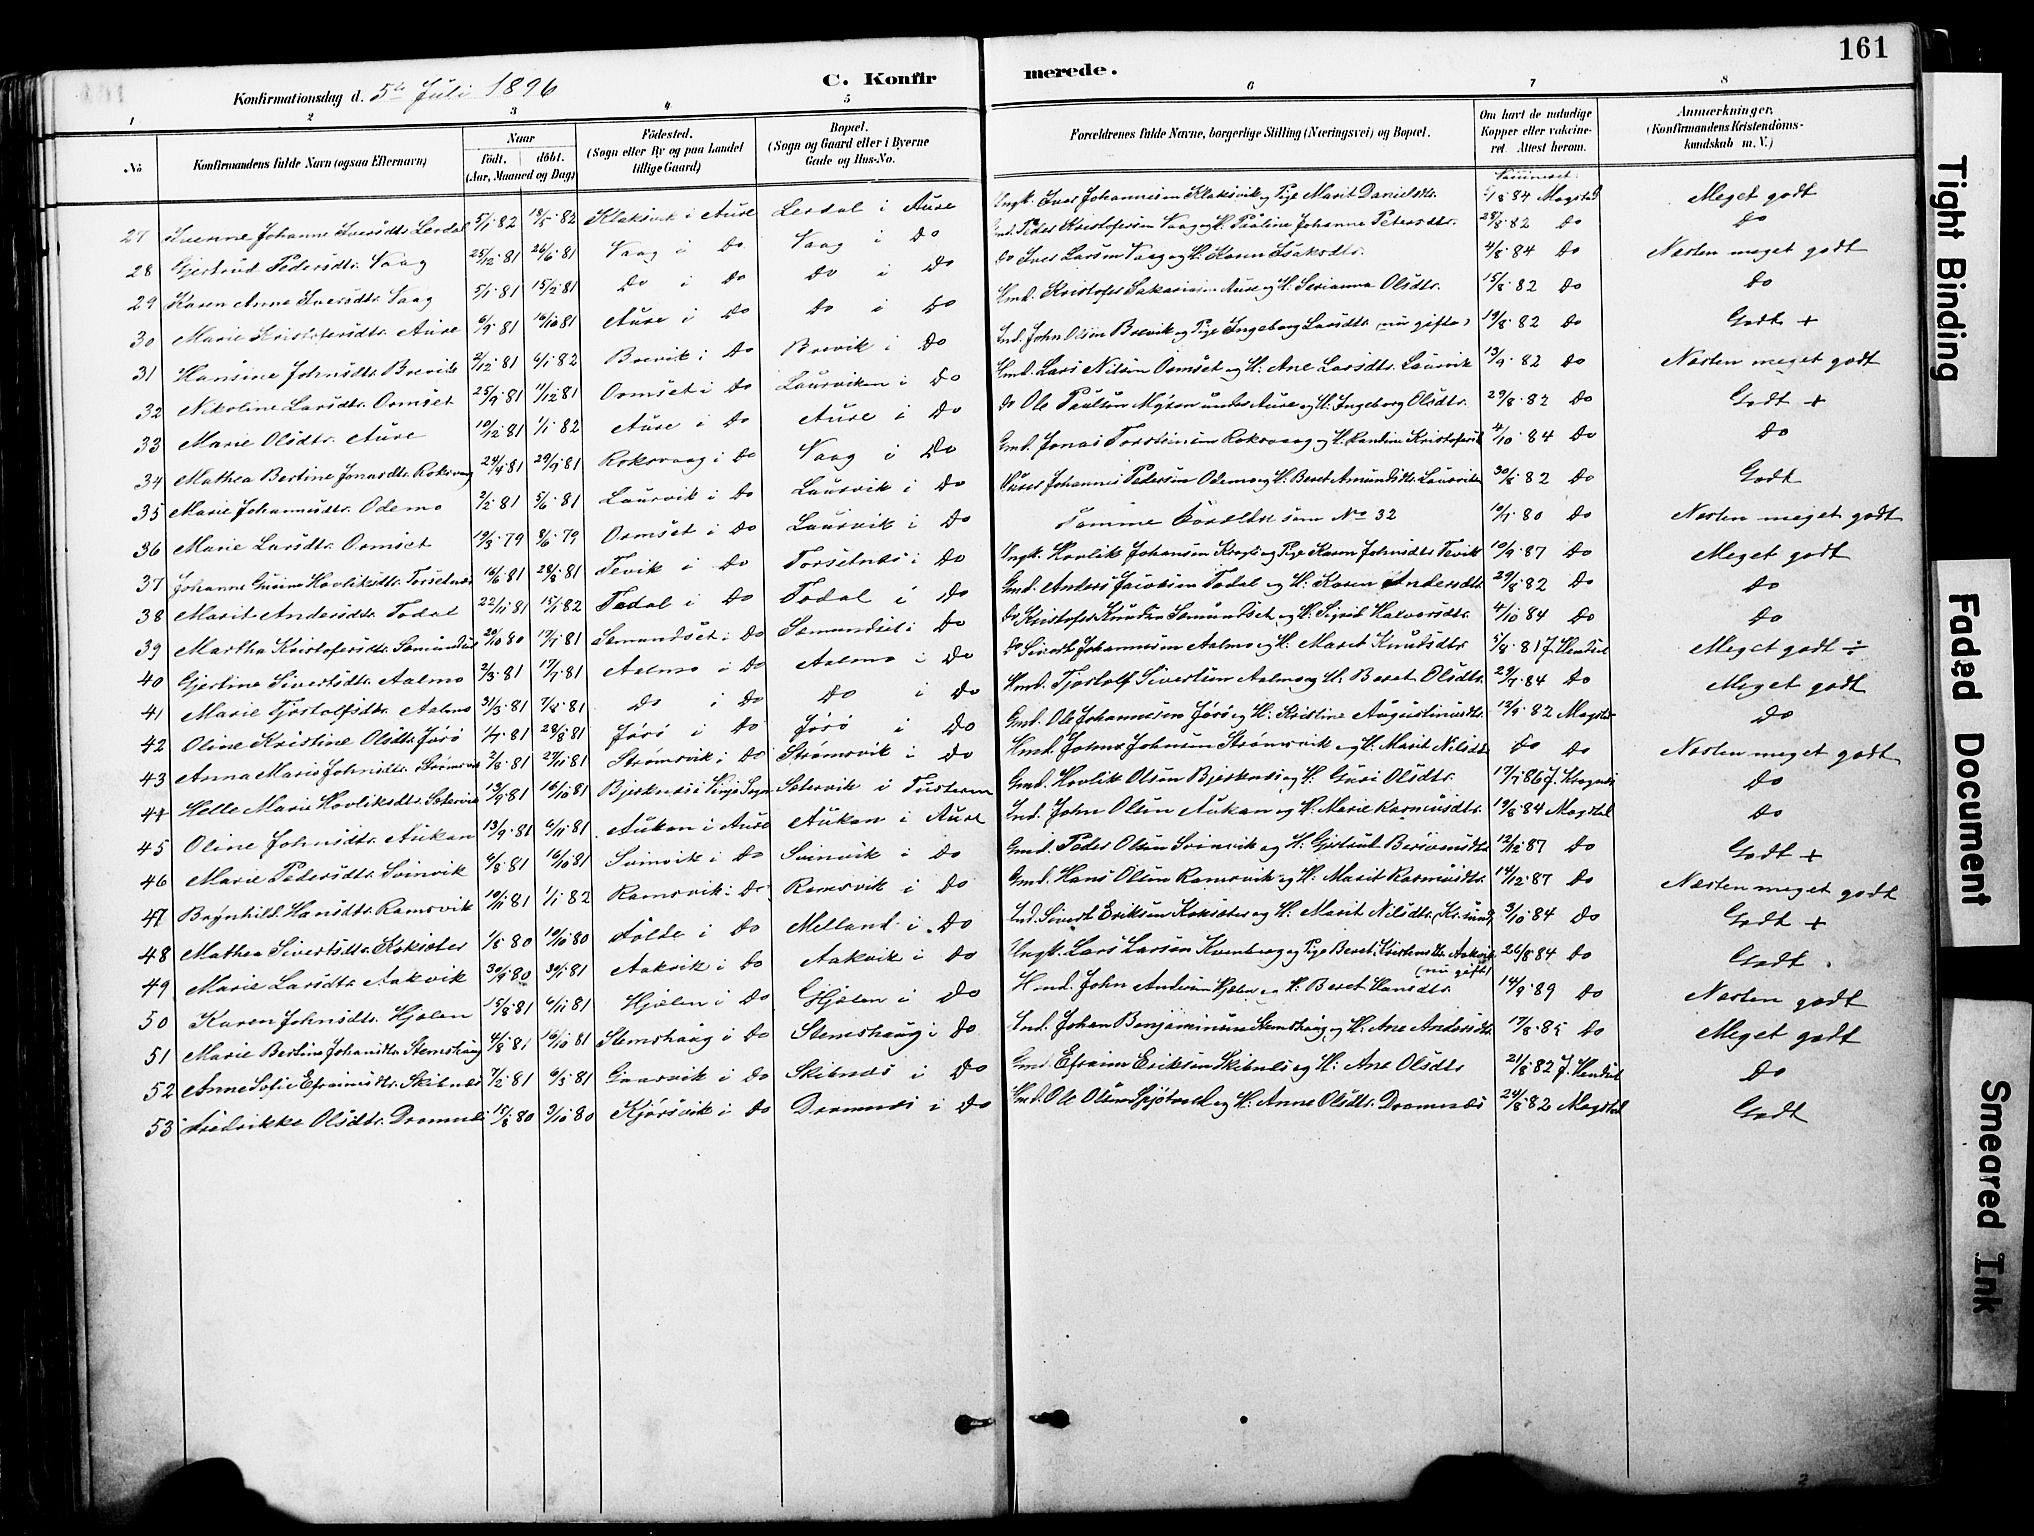 161
Konfirmationsdag d. 5te Juli 1896
C. Konfir merede.
1 2 3 4 5 6 7 8
No
Konfirmandens fulde Navn (ogsaa Efternavn)
Naar
födt. döbt.
(Aar, Maaned og Dag)
Födested.
(Sogn eller By og paa Landet
tillige Gaard)
Bopæl.
(Sogn og Gaard eller i Byerne
Gade og Hus-No.
Forældrenes fulde Navne, borgerlige Stilling (Næringsvei) og Bopæl.
Om havt de naturlige
Kopper eller vakcine-
ret. Attest herom.
Anmærkninger,
(Konfirmandens Kristendoms-
kundskab m. V.)
27 Johanne Iversdtr. Lerdal 5/1 82 Klaksvik i Aure Lerdal i Aure Ungk. Iver Johannesen Klaksvik og Pige Marit Danielsdtr. 84 Magstad Meget godt
28 Gjertrud Pedersdtr. Vaag 25/12 81 26/6 81 Vaag i Do Vaag i Do Peder Kristofersen Vaag og H. Pauline Johanne Petersdtr. 28/8 82 Do Do
29 Karen Anne Iversdtr. Vaag 5/1 81 15/2 81 Do i Do Do i Do Do Iver Larsen Vaag og H. Karen Isaksdtr. 4/8 84 Do Næsten meget godt
30 Marie Kristofersdtr. Aure 6/9 81 16/10 81 Aure i Do Do i Do Kristofer Sakariasen Aure og H. Serianna Olsdtr. 15/8 82 Do Do
31 Hansine Johnsdtr. Brevik 2/12 81 6/1 82 Brevik i Do Brevik i Do Ind. John Olsen Brevik og Pige Ingeborg Larsdtr. (nu gifte) 19/8 82 Do Godt +
32 Nikoline Larsdtr. Ormset 25/9 81 11/12 81 Ormset i Do Laurviken i Do Gmd. Lars Nilsen Ormset og H. Ane Larsdtr. Laurvik 13/9 82 Do Næsten meget godt
33 Marie Olsdtr. Aure 10/12 81 1/1 82 Aure i Do Aure i Do Do Ole Paulsen Myren under Aure og H. Ingeborg Olsdtr. 29/8 82 Do Godt +
34 Mathea Bertine Jonasdtr. Roksvaag 24/4 81 29/9 81 Roksvaag i Do Vaag i Do Gmd. Jonas Torsteinsen Roksvaag og H. 4/10 84 Do Do
35 Marie Johannesdtr. Odemo 2/2 81 5/6 81 Laurvik i Do Laurvik i Do Johannes Pedersen Odemo og H. Beret Amundsdtr. Laurviken 30/8 82 Do Godt
36 Marie Larsdtr. Ormset 19/3 79 8/6 79 Ormset i Do Laurvik i Do Samme Forældre som No 32 80 Do Næsten meget godt
37 Johanne Gurine Hovliksdtr. Torsetnes 16/6 81 28/8 81 Tevik i Do Torsetnes i Do Ungk. Hovlik Johansen og Pige Karen Johnsdtr. Tevik 10/9 87 Do Meget godt
38 Marit Andersdtr. Todal 22/11 81 15/1 82 Todal i Do Todal i Do Gmd. Anders Jacobsen Todal og H. Karen Andersdtr. 29/8 82 Do Do
39 Martha Kristofersdtr. Semundset 29/10 80 17/4 81 Semundset i Do Semundset i Do Do Kristofer Knudsen Semundset og H. Sigrid Halvorsdtr. 4/10 84 Do Do
40 Gjertine Sivertsdtr. Aalmo 2/3 81 17/7 81 Aalmo i Do Aalmo i Do Do Sivert Johannesen Aalmo og H. Marit Knutsdtr. 5/4 81 J. Hendset Meget godt ÷
41 Marie Tjostolfsdtr. Aalmo 31/3 81 7/4 81 Do i Do Do i Do Tjostolf Sivertsen Aalmo og H. Beret Olsdtr. 29/7 84 Do Meget godt
42 Oline Kristine Olsdtr. Jørø 1/7 81 28/8 81 Jørø i Do Jørø i Do Gmd. Ole Johannesen Jørø og H. Kristine Augustinusdtr. 12/9 82 Magstad Do
43 Anna Marie Johnsdtr. Strømsvik 2/8 81 27/11 81 Strømsvik i Do Strømsvik i Do John Johnsen Strømsvik og H. Marit Nilsdtr. Do Do Næsten meget godt
44 Helle Marie Hovliksdtr. Sætervik 13/9 81 16/10 81 Bjerknes i Vinje Sogn Sætervik i Tusteren Gmd. Hovlik Olsen Bjerknes og H. Guri Olsdtr. 17/7 86 Do
45 Oline Johnsdtr. Aukan 13/9 81 6/11 81 Aukan i Aure Aukan i Aure Ind. John Olsen Aukan og H. Marie Rasmusdtr. 19/8 84 Magstad Do
46 Marie Pedersdtr. Svinvik 6/8 81 16/10 81 Svinvik i Do Svinvik i Do Gmd. Peder Olsen Svinvik og H. Gjertrud 12/12 87 Do Godt +
47 Brynhild Hansdtr. Ramsvik 10/11 81 1/1 82 Ramsvik i Do Ramsvik i Do Gmd. Hans Olsen Ramsvik og H. Marit Rasmusdtr. 14/12 87 Do Næsten meget godt
48 Mathea Sivertsdtr. Koksæter 1/5 80 10/10 80 Folde i Do Melland i Do Ind. Sivert Eriksen Koksæter og H. Marit Nilsdtr. (Kr.sund) 3/10 84 Do Godt +
49 Marie Larsdtr. Aakvik 30/9 80 30/1 81 Aakvik i Do Aakvik i Do Ungk. Lars Larsen Kvenberg og Pige Beret Kristensdtr. Aakvik (nu gift) 26/8 84 Do Godt
50 Karen Johnsdtr. Hjelen 15/8 81 6/11 81 Hjelen i Do Hjelen i Do John Andersen Hjelen og H. Beret Hansdtr. 14/9 89 Do Næsten godt
51 Marie Bertine Johansdtr. Stemshaug 4/8 81 16/10 81 Stemshaug i Do Stemshaug i Do Ind. Johan Benjaminsen Stemshaug og H. Ane Andersdtr. 17/8 85 Do Meget godt
52 Anne Sofie Efraimsdtr. Skibnes 7/2 81 6/3 81 Gaarvik i Do Skibnes i Do Gmd. Efraim Eriksen Skibnes og H. Ane Olsdtr. 21/8 82 J. Hendset Do
53 Fredrikke Olsdtr. Dromnes 15/8 80 3/10 80 Kjørsvik i Do Dromnes i Do Ole Olsen og H. Anne Olsdtr. Dromnes 24/8 82 Magstad Godt
Tight Binding
Faded Document
Smeared Ink